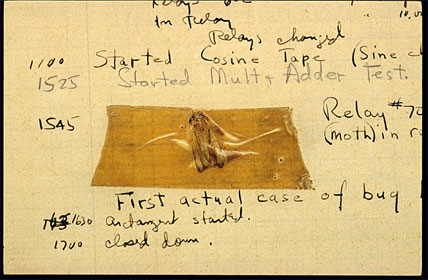 Relays
in Relay
Relays changed
1100 Started Cosine Tape (Sine c
1525 Started Mult + Adder Test.
1545 Relay #70
(moth) in r
First actual case of bug
1630 arctangent started.
1700 closed down.